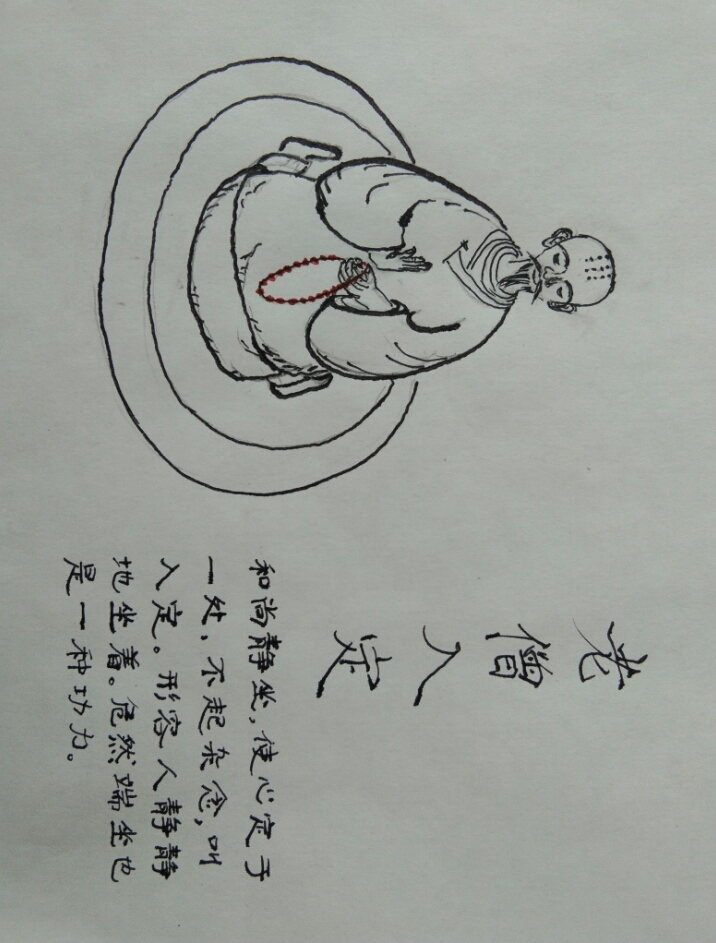 老僧入定
和尚静坐,使心定于
一处,不起杂念,叫
入定。形容人静静
地坐着。危然端坐也
是一种功力。